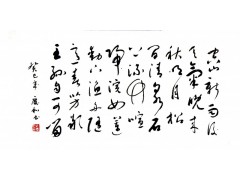 空山新雨後
天氣晚来
秋明月松
间照清泉石
上流竹喧
归浣女莲
動下渔舟随
意春芳歇
王孙自可留
癸巳年